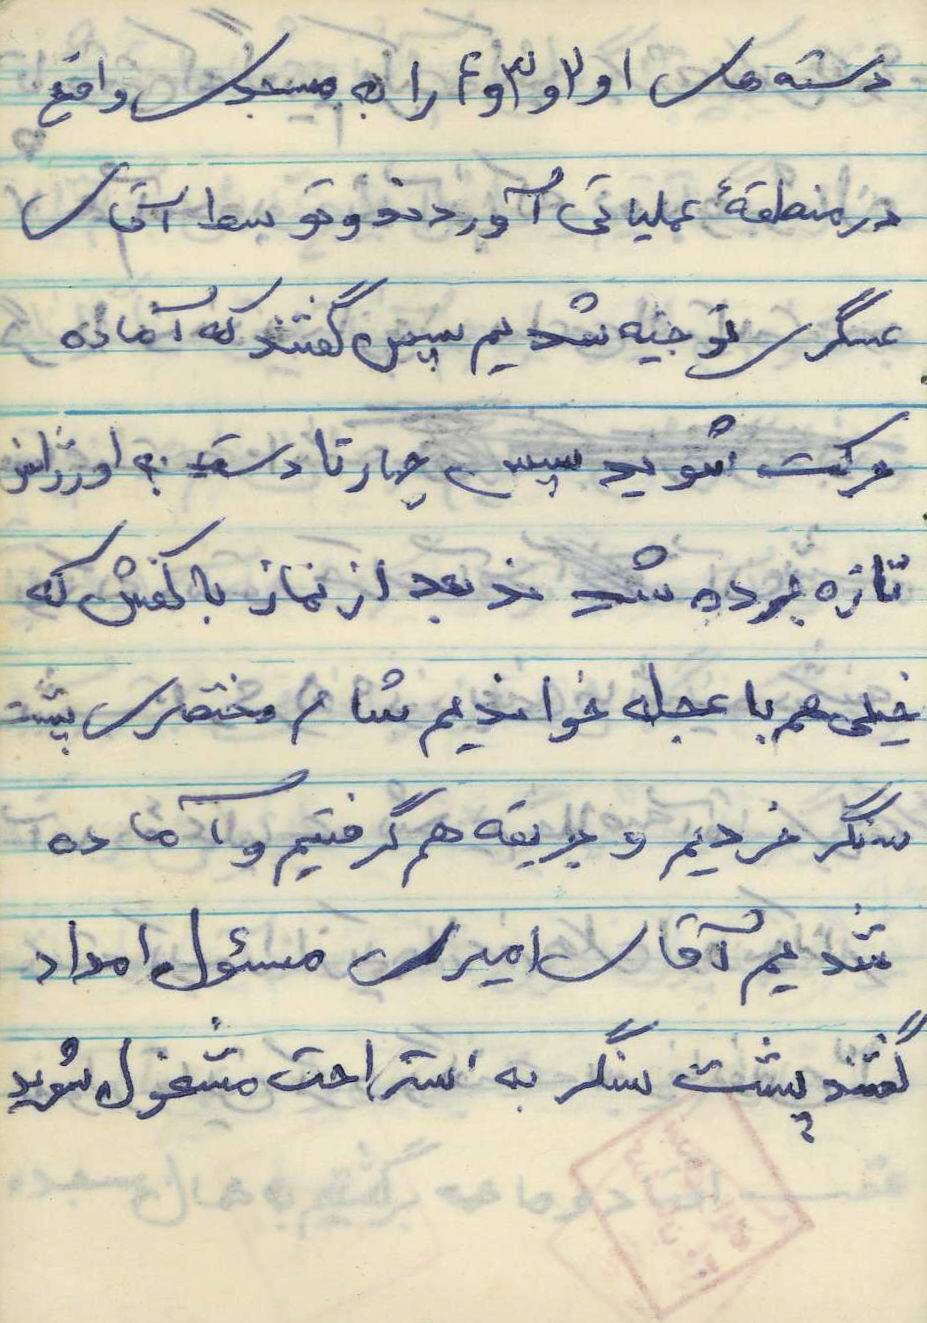 دسته های ۱ و ۲ و ۳ و ۴ را به مسجدی واقع
در منطقهٔ عملیاتی آوردند و توسط آقای
عسگری توجیه شدیم سپس گفتند که آماده
حرکت شوید سپس چهارتا دسته به اورژانس
تازه برده شدند بعد از نماز با کفش که
خیلی هم با عجله خواندیم شام مختصری پشت
سنگر خوردیم و جریقه هم گرفتیم و آماده
شدیم آقای امیری مسئول امداد
گفتند پشت سنگر به استراحت مشغول شوید